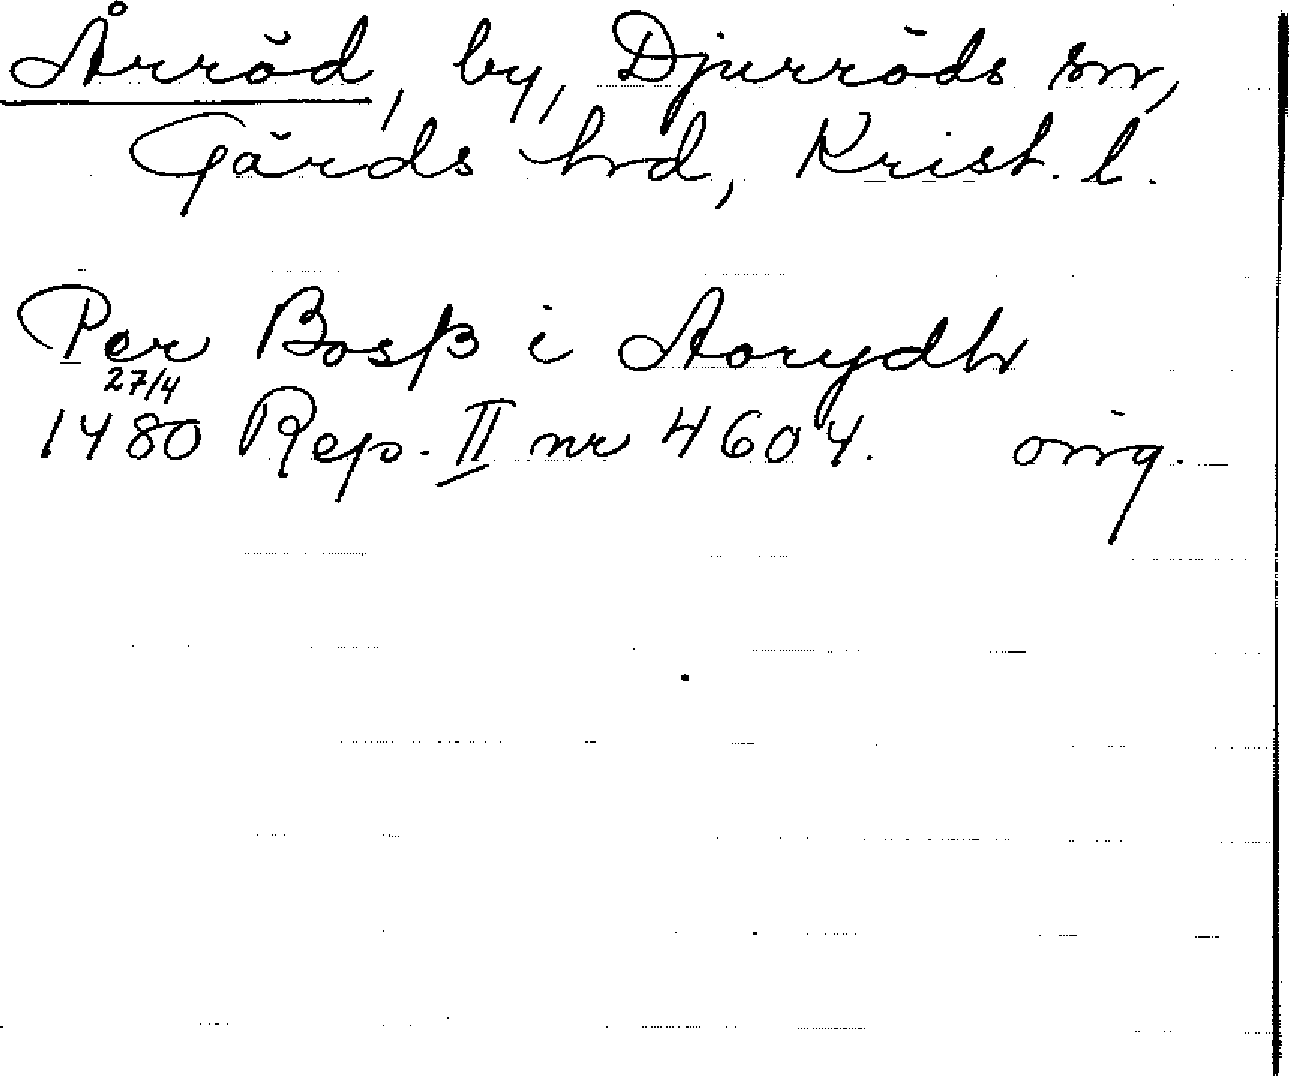 Årröd, by, Djurröds sn,
Gärds hrd, Krist. l.
Per Bosß i Aorydh
27/4
1480 Rep. II nr 4604. orig.